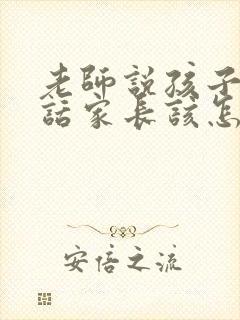 老師說孩子
話家長該怎
安倍之流